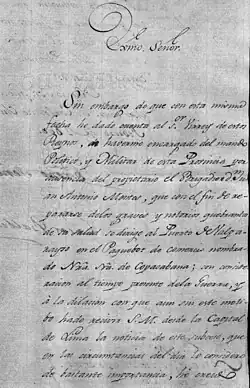 Exmo. Señor.
Sin embargo de que con esta misma
fecha he dado cuenta al Sr. Virrey de estos
Reynos, de haverme encargado del mando
Politico, y Militar de esta Provincia por
ausencia del propietario el Brigadier Dn.
Antonio Montes, que con el fin de re-
pararse de los graves y notorios quebrantos
de su salud se dirige al Puerto de
en el Paquebot de comercio nombra-
do Nra. Sra. de Copacabana; con conside-
racion al tiempo presente de la Guerra, y
à la dilacion con que aun sin este moti-
bo hade recivir S.M. desde la Capital
de Lima la noticia de este sobre, que
en las circunstancias del dia lo considero
de bastante importancia, he